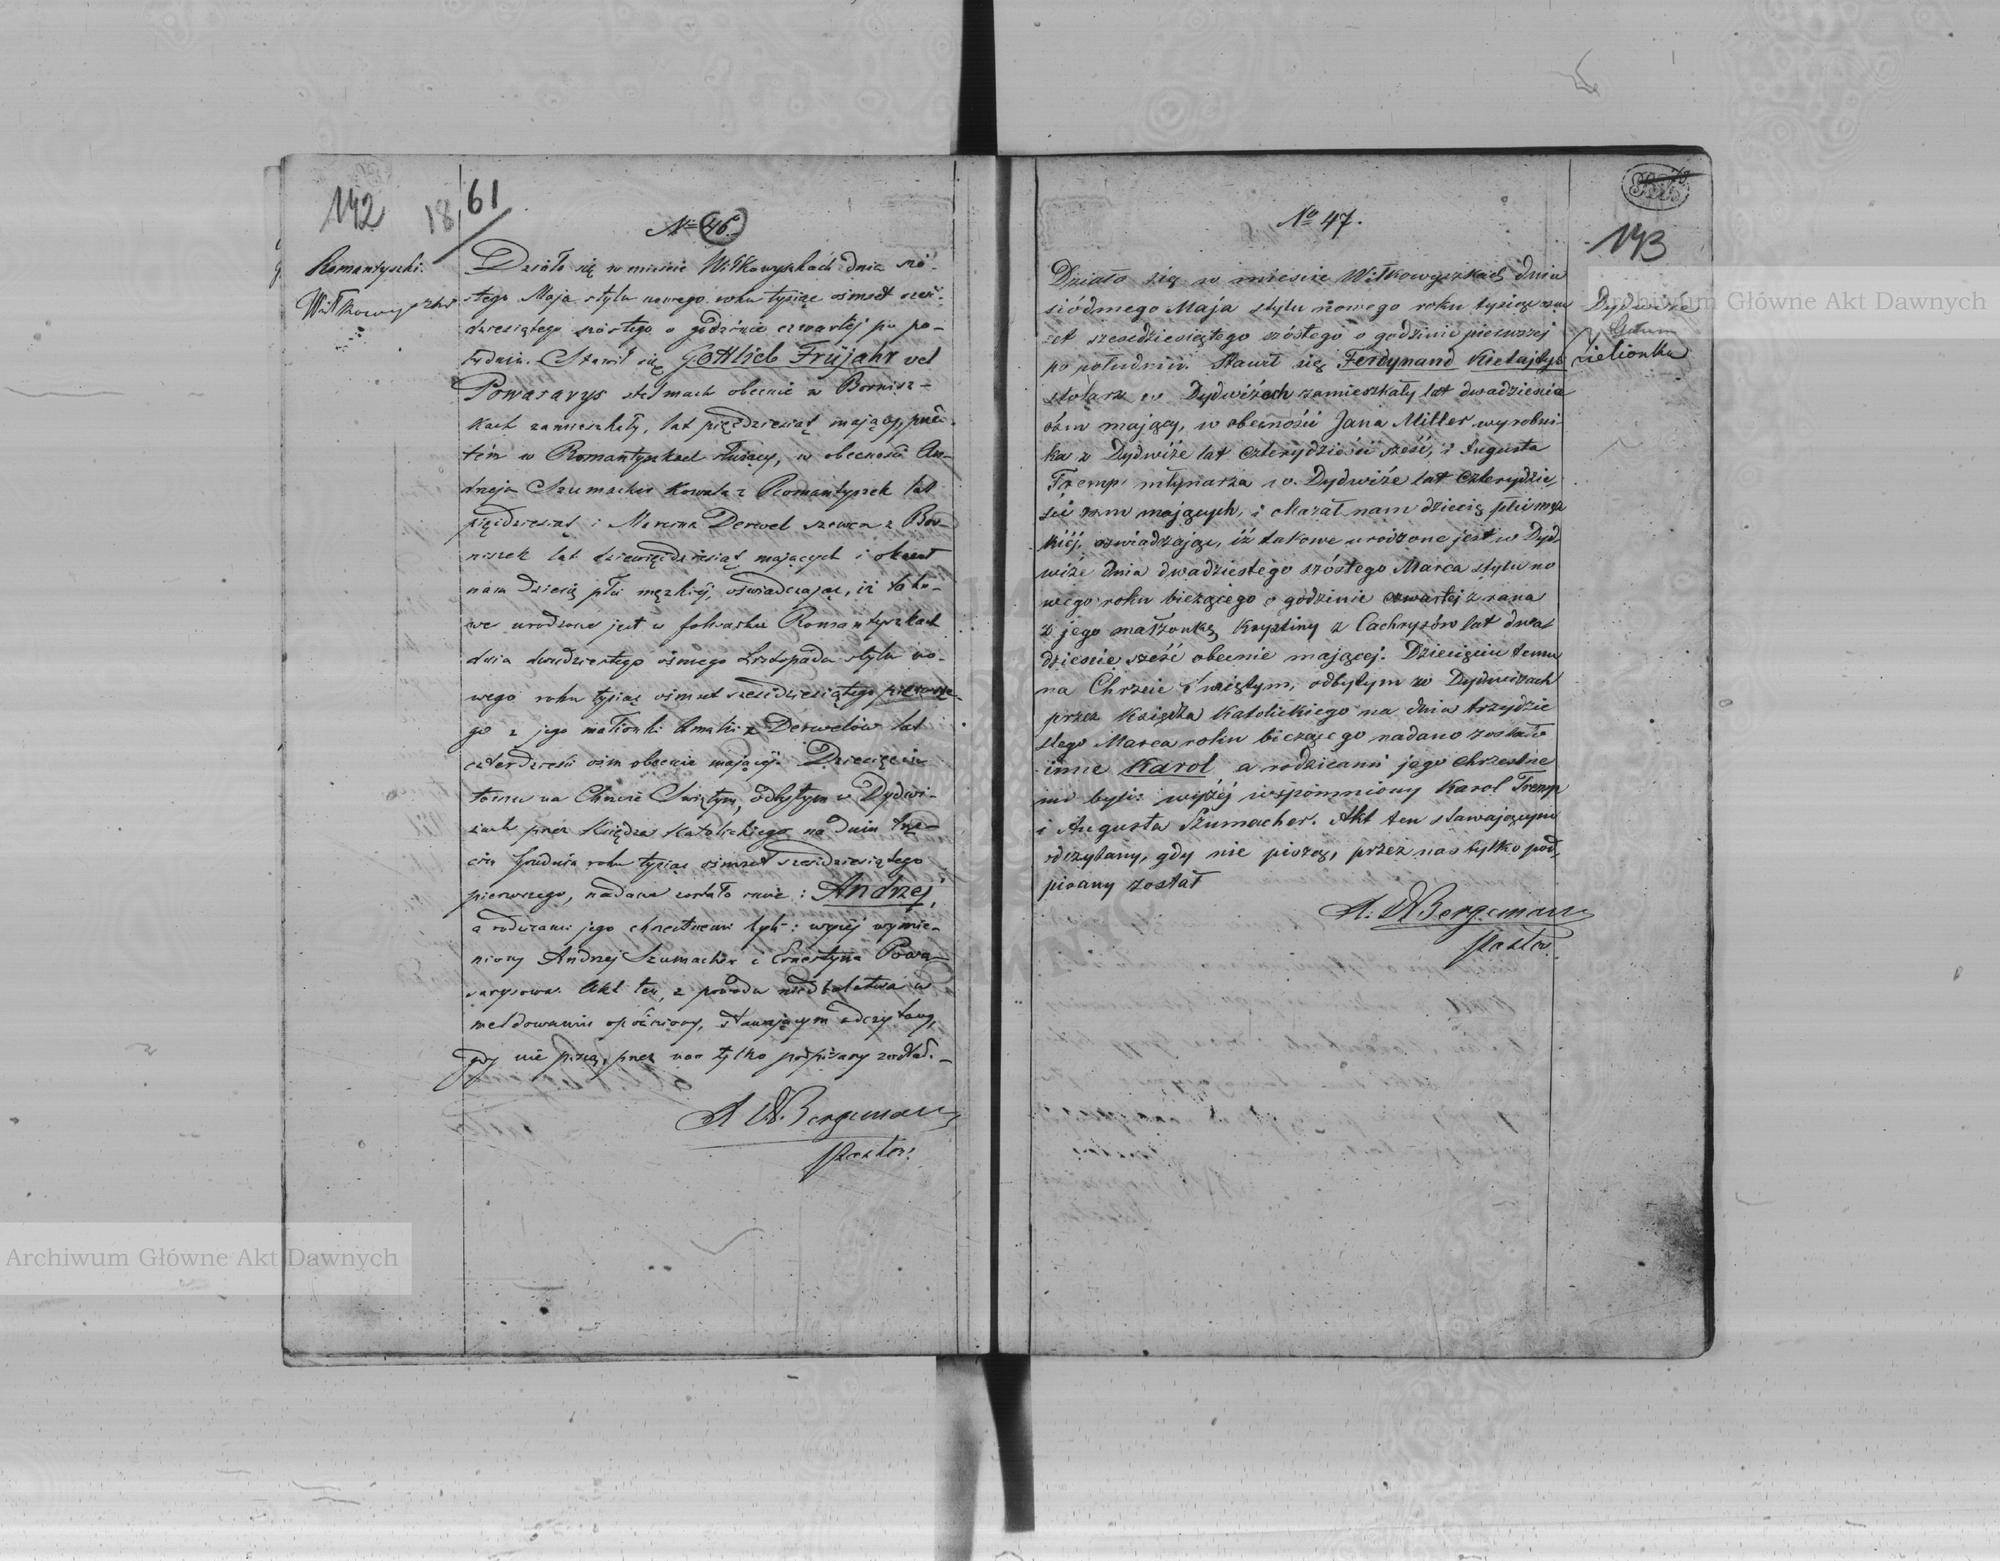 142
18 61
Romantyszki.
Wiłkowyszki
No 46.
Działo się w mieście Wiłkowyszkach dnia szó-
stego Maja stylu nowego roku tysiąc ośmset sześć-
dziesiątego szóstego o godzinie czwartej po po-
łudniu. Stawił się Gottlieb Früjahr vel
Powasarys stelmach obecnie w Bornisz-
kach zamieszkały, lat pięćdziesiąt mający, przed-
tém w Romantyszkach służący, w obecności An-
drzeja Szumacher kowala z Romantyszek lat
pięćdziesiąt i Marcina Derwel szewca z Bor-
niszek lat dziewięćdziesiąt mających i okazał
nam dziecię płci męzkiéj, oświadczając, iż tako-
we urodzone jest w folwarku Romantyszkach
dnia dwudziestego ósmego Listopada stylu no-
wego roku tysiąc ośmset sześćdziesiątego pierwsze-
go z jego małżonki Amalii z Derwelów lat
czterdzieści ośm obecnie mającéj. Dziecięciu
temu na Chrzcie Świętym, odbytym w Dydwi-
żach przez Księdza Katolickiego na dniu trze-
cim Grudnia roku tysiąc ośmset sześćdziesiątego
pierwszego, nadane zostało imie: Andrzej,
a rodzicami jego chrzestnemi byli: wyżéj wymie-
niony Andrzej Szumacher i Ernestyna Powa-
sarysowa. Akt ten, z powodu niedbalstwa w
meldowaniu opóźniony, stawającym odczytany,
gdy nie piszą, przez nas tylko podpisany został.
A W. Bergemann
Pastor.
No 47.
143
Dydwiże
Gutum
Zielionka
Działo się w mieście Wiłkowyszkach dnia
siódmego Maja stylu nowego roku tysiąc ośm
set sześćdziesiątego szóstego o godzinie pierwszej
po południu. Stawił się Ferdynand Kietajtys
stolarz w Dydwiżach zamieszkały lat dwadzieścia
ośm mający, w obecności Jana Miller wyrobni-
ka z Dydwiże lat czterydzieści sześć, i Augusta
Tremp młynarza w Dydwiże lat czterydzie,
ści ośm mających, i okazał nam dziecię płci męz
kiéj, oswiadczając, iż takowe urodzone jest w Dyd,
wiże dnia dwadziestego szóstego Marca stylu no
wego roku bieżącego o godzinie czwartej z rana
z jego małżonką Krystiny z Cachryzów lat dwa,
dzieścia sześć obecnie mającej. Dziecięciu temu
na Chrzcie Świętym, odbytym w Dydwizach
przez Księdza Katolickiego na dniu trzydzie
stego Marca roku bieżącego nadano zostało
imie Karol a rodzicami jego chrzestne
mi byli: wyżéj wspomniony Karol Tremp
i Augusta Szumacher. Akt ten stawającym
odczytany, gdy nie piszą, przez nas tylko pod,
pisany został
A. W Bergemann
Pastor.
Archiwum Główne Akt Dawnych
Archiwum Główne Akt Dawnych